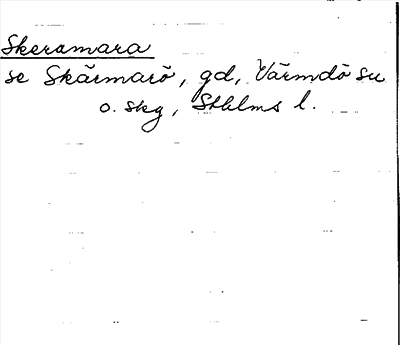 Skeramara
se Skärmarö, gd, Värmdö sn
o. skg, Sthlms l.